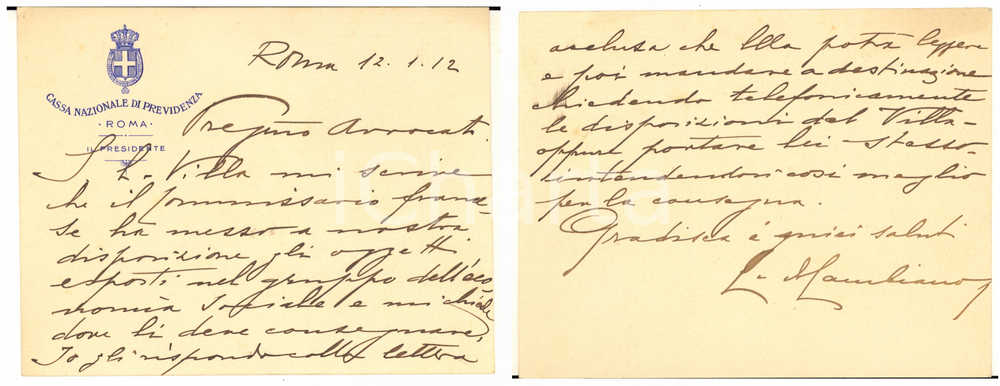 CASSA NAZIONALE DI PREVIDENZA
· ROMA ·
IL PRESIDENTE
Roma 12.1.12
Pregmo Avvocato
Villa mi scrive
che il Commissario france-
se ha messo a nostra
disposizione gli oggetti
esposti nel gruppo dell'eco
nomia sociale e mi chiede
dove li deve consegnare.
Io gli rispondo colla lettera
acclusa che Ella potrà leggere
e poi mandare a destinazione
chiedendo telefonicamente
le disposizioni del Villa-
oppure portare lei stesso
intendendosi così meglio
per la consegna.
Gradisca i miei saluti
iCharta